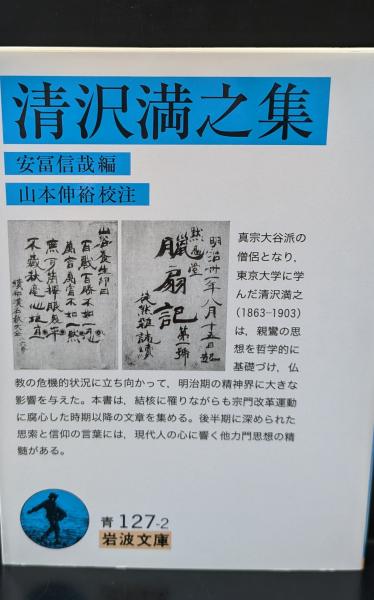 清沢満之集
安冨信哉編
山本伸裕校注
明治卅一年八月十五日起
黙忍堂
臘扇記 第一號
真宗大谷派の
僧侶となり，
東京大学に学
んだ清沢満之
(1863-1903)
は，親鸞の思
想を哲学的に
基礎づけ，仏
教の危機的状況に立ち向かって，明治期の精神界に大きな
影響を与えた。本書は，結核に罹りながらも宗門改革運動
に腐心した時期以降の文章を集める。後半期に深められた
思索と信仰の言葉には，現代人の心に響く他力門思想の精
髄がある。
青 127-2
岩波文庫